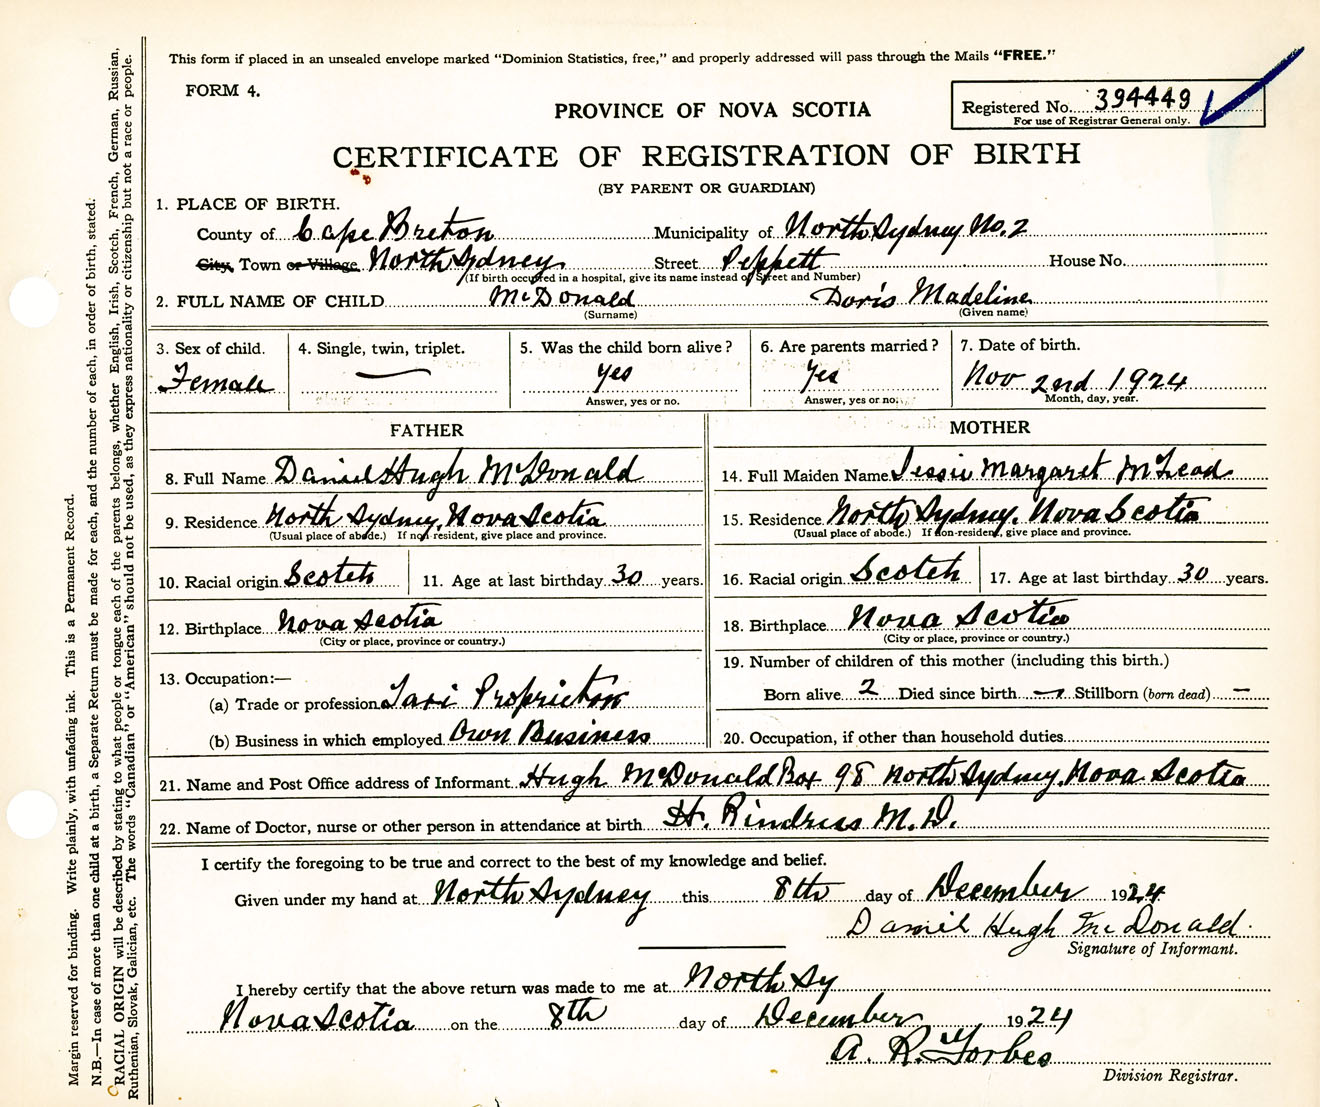 This form if placed in an unsealed envelope marked “Dominion Statistics, free,” and properly addressed will pass through the Mails “FREE.”
FORM 4.
PROVINCE OF NOVA SCOTIA
Registered No. 394449
For use of Registrar General only.
CERTIFICATE OF REGISTRATION OF BIRTH
(BY PARENT OR GUARDIAN)
1. PLACE OF BIRTH.
County of Cape Breton Municipality of North Sydney No. 2
City, Town or Village North Sydney Street Peppett House No.
(If birth occurred in a hospital, give its name instead of Street and Number)
2. FULL NAME OF CHILD McDonald Doris Madeline
(Surname) (Given name)
3. Sex of child. 4. Single, twin, triplet. 5. Was the child born alive? 6. Are parents married? 7. Date of birth.
Female — yes yes Nov 2nd 1924
Answer, yes or no. Answer, yes or no. Month, day, year.
FATHER MOTHER
8. Full Name Daniel Hugh McDonald 14. Full Maiden Name Jessie Margaret McLeod
9. Residence North Sydney, Nova Scotia 15. Residence North Sydney, Nova Scotia
(Usual place of abode.) If non-resident, give place and province. (Usual place of abode.) If non-resident, give place and province.
10. Racial origin Scotch 11. Age at last birthday 30 years. 16. Racial origin Scotch 17. Age at last birthday 30 years.
12. Birthplace Nova Scotia 18. Birthplace Nova Scotia
(City or place, province or country.) (City or place, province or country.)
13. Occupation:— 19. Number of children of this mother (including this birth.)
(a) Trade or profession Taxi Proprietor Born alive 2 Died since birth — Stillborn (born dead) —
(b) Business in which employed Own Business 20. Occupation, if other than household duties
21. Name and Post Office address of Informant Hugh McDonald Box 98 North Sydney, Nova Scotia
22. Name of Doctor, nurse or other person in attendance at birth H. Rindress M.D.
I certify the foregoing to be true and correct to the best of my knowledge and belief.
Given under my hand at North Sydney this 8th day of December 1924
Daniel Hugh McDonald.
Signature of Informant.
I hereby certify that the above return was made to me at North Sy
Nova Scotia on the 8th day of December 1924
A. R. Forbes
Division Registrar.
Margin reserved for binding. Write plainly, with unfading ink. This is a Permanent Record.
N.B.—In case of more than one child at a birth, a Separate Return must be made for each, and the number of each, in order of birth, stated.
RACIAL ORIGIN will be described by stating to what people or tongue each of the parents belongs, whether English, Irish, Scotch, French, German, Russian,
Ruthenian, Slovak, Galician, etc. The words “Canadian” or “American” should not be used, as they express nationality or citizenship but not a race or people.